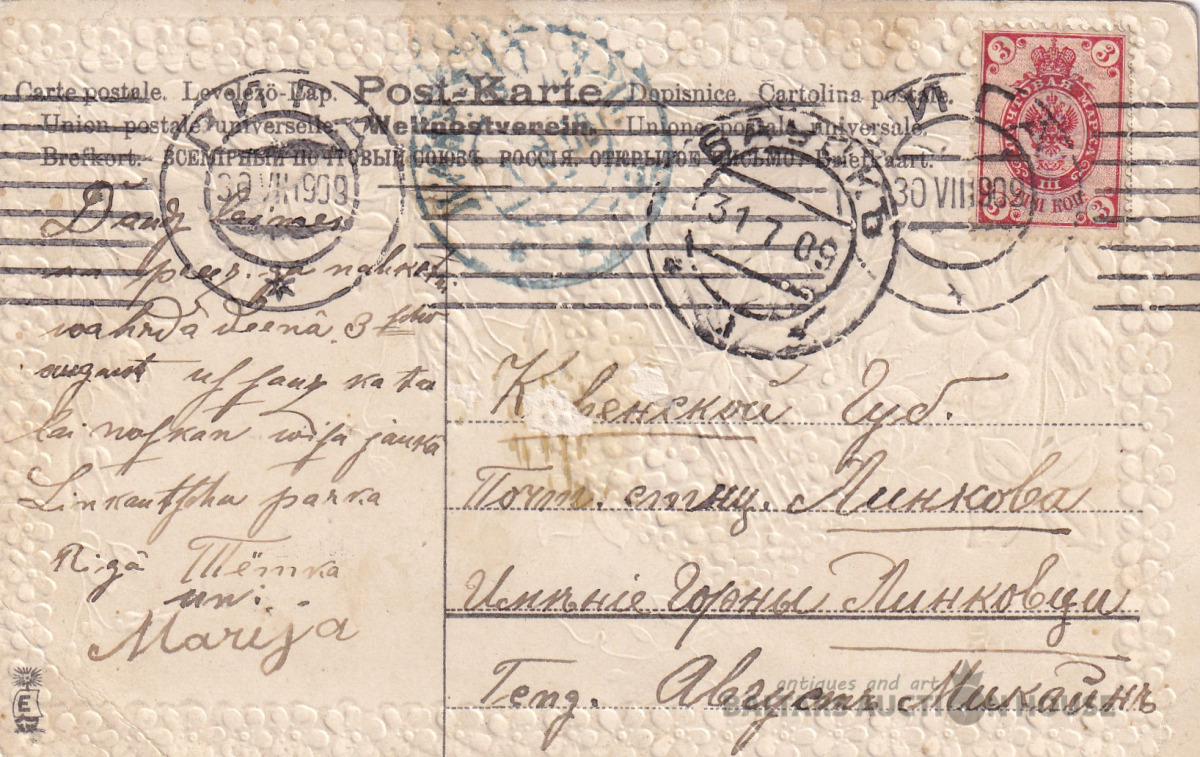 Carte postale. Levelező-Lap. Post-Karte. Dopisnice. Cartolina postale.
Union postale universelle. Weltpostverein. Unione postale universale.
Brefkort. ВСЕМІРНЫЙ ПОЧТОВЫЙ СОЮЗЪ. РОССІЯ. ОТКРЫТОЕ ПИСЬМО. Briefkaart.
3 3
ПОЧТОВАЯ МАРКА
III
3 КОП. 3
30 VII 909
БАУСКЪ
31 7 09
30 VII 909
Daudz laimes
nahkt
wahrdâ deenâ 3
august
lai
Linkautscha parka
Rigâ Тётка
un
Marija
Ковенской Губ.
Почт. стнц. Линкова
Имѣніе Горны Линковци
Августъ Микайнъ
antiques and art
BALTARS AUCTION HOUSE